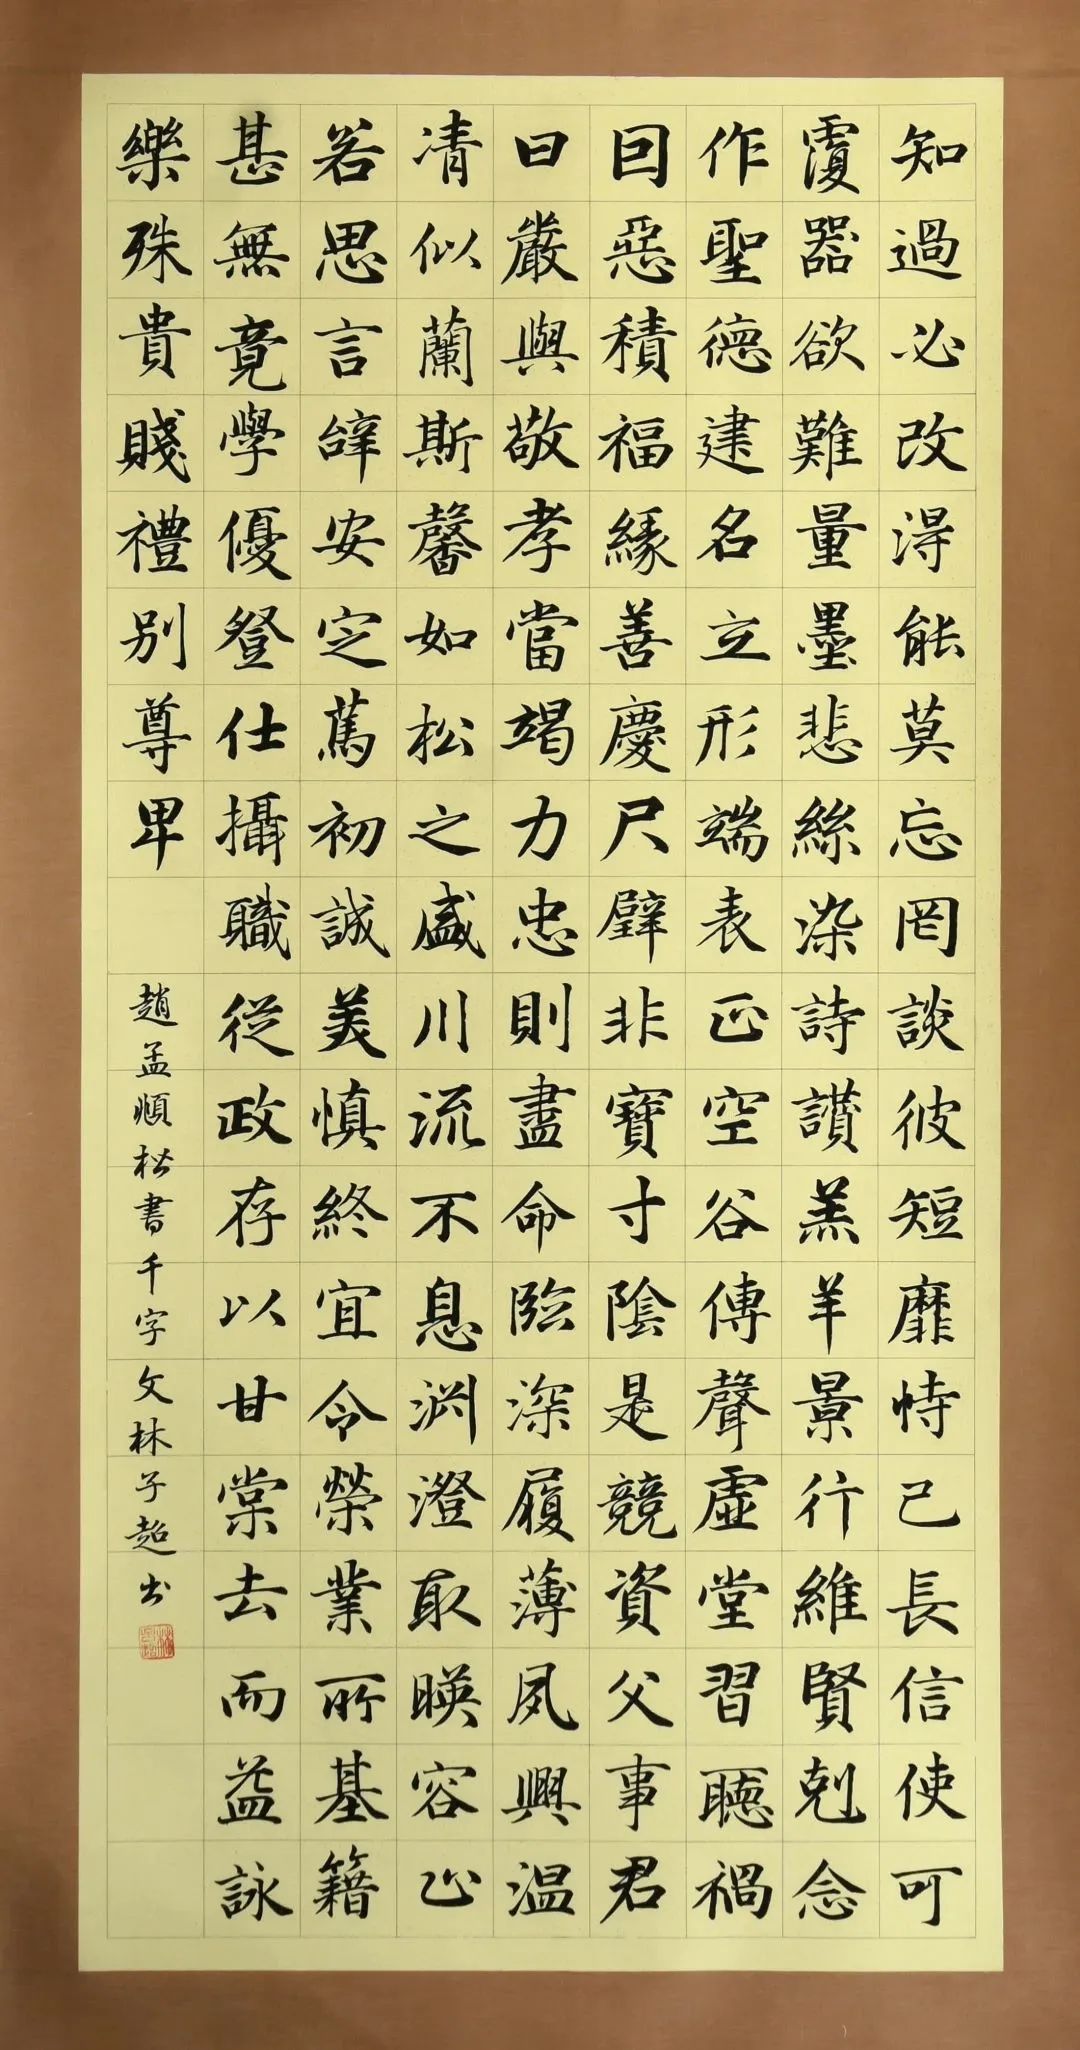 知過必改得能莫忘罔談彼短靡恃己長信使可
覆器欲難量墨悲絲染詩讚羔羊景行維賢剋念
作聖德建名立形端表正空谷傳聲虛堂習聽禍
因惡積福緣善慶尺璧非寶寸陰是競資父事君
曰嚴與敬孝當竭力忠則盡命臨深履薄夙興温
凊似蘭斯馨如松之盛川流不息渊澄取暎容止
若思言辭安定篤初誠美慎終宜令榮業所基籍
甚無竟學優登仕攝職從政存以甘棠去而益詠
樂殊貴賤禮別尊卑
趙孟頫楷書千字文林子超书